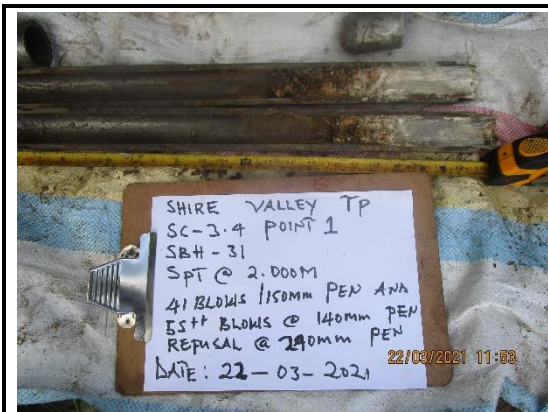 SHIRE VALLEY TP
SC-3.4 POINT 1
SBH-31
SPT @ 2.000M
41 BLOWS /150mm PEN AND
55++ BLOWS @ 140mm PEN
REFUSAL @ 290mm PEN
DATE: 22-03-2021
22/03/2021 11:53